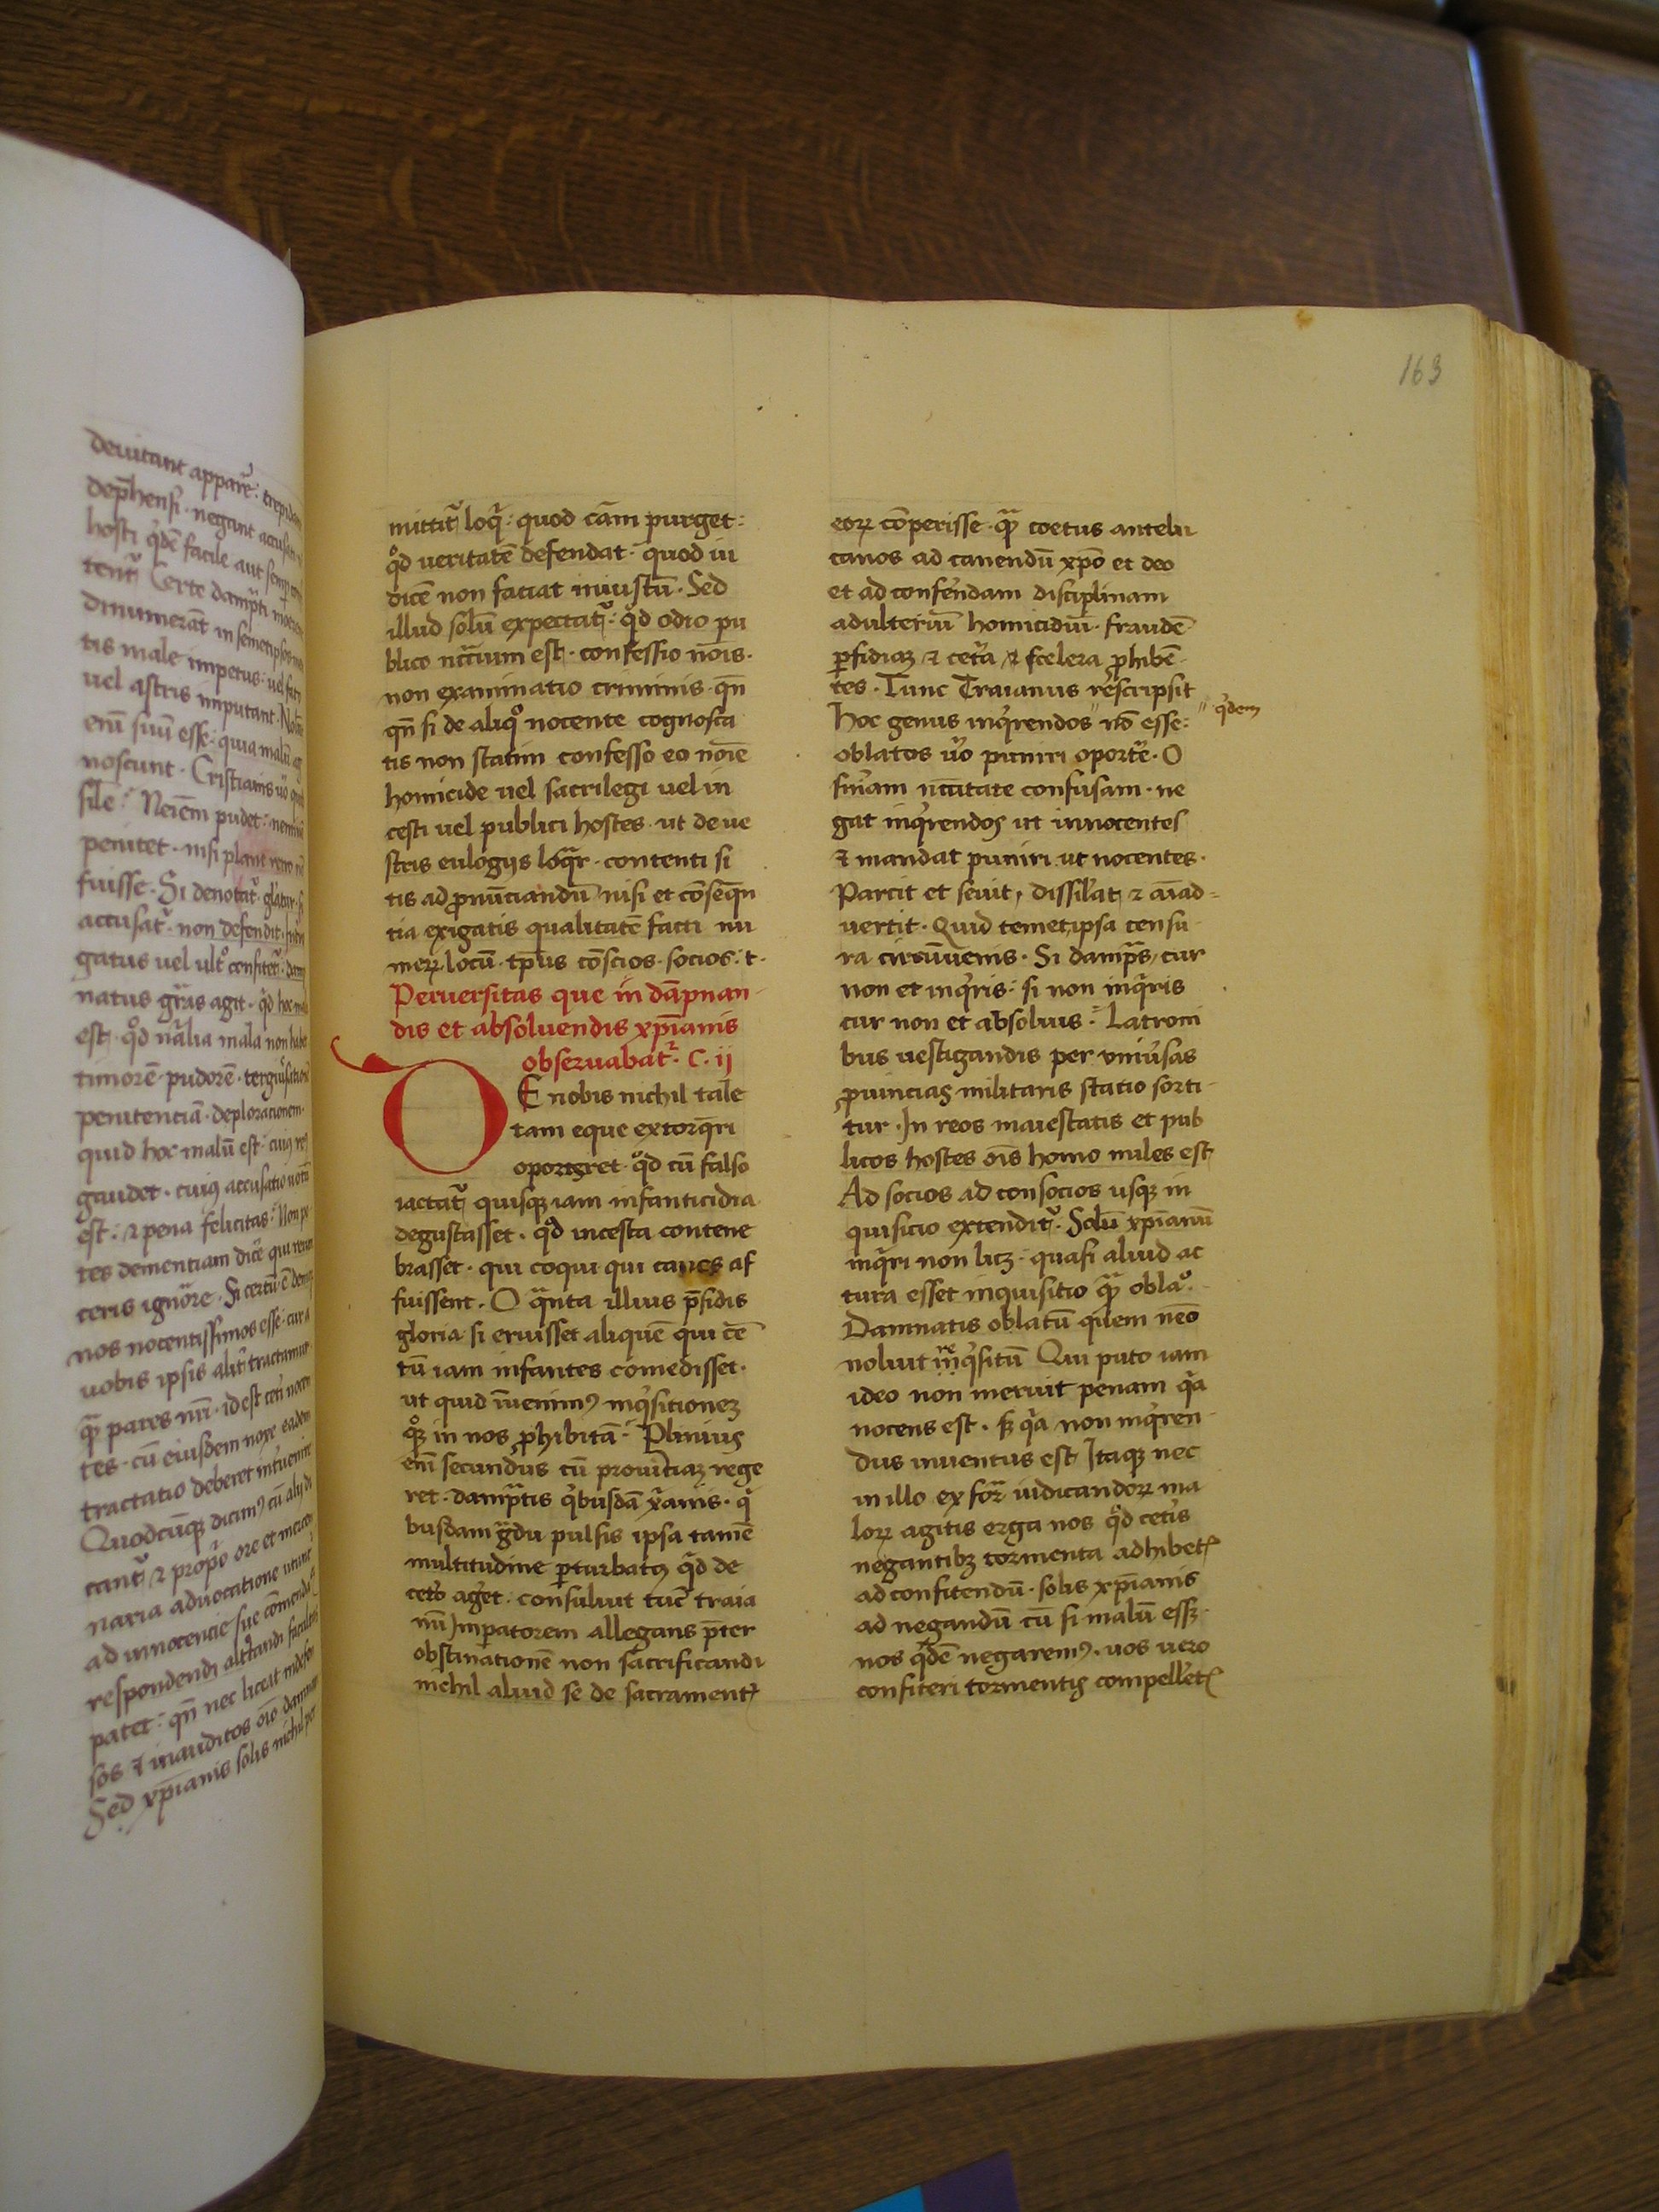 deuitant appare᷑: trepidant
dep̄hensi · negant accusati
hosti q'dē facile aut semp
tent᷑ Certe dāpn̄ti merent
dinumerāt in semetipsos
tis male impetus: uel fati
uel astris imputant· Nolūt
eni᷑ suū esse: quia malū
noscunt · Cristianis u͛o
sile: Neiēm pudet: neminē
penitet · nisi plane retro nō
fuisse· Si denotat᷑· gl̄atur· si
accusat᷑· non defendit·
gatus uel ultͦ confitet᷑· dam
natus gr̄as agit· qd̊ hoc mali
est· qd̊ nālia mala non habet
timorē· pudorē· tergiu͛satione
penitentiā· deplorationem·
quid hoc malū est· cuiꝰ reꝰ
gaudet· cuiꝰ accusatio uotū
est: ⁊ pena felicitas: Non po
tes dementiam dice᷑ qui reuin
ceris ignōre· Si certū ē denique
nos nocentissimos esse· cur a
uobis ipsis alit᷑ tractamur
qͣꝫ pares nr̄i· id est cet͛i nocen
tes· cū eiusdem noxe eadem
tractatio deberet int͛uenire
Quodcūqꝫ dicimꝰ cū alij di
cant᷑ ⁊ prop͛o ore et merce
naria aduocatione utunt᷑
ad innocentie sue cōmendat
respondendi alt͛candi facultas
patet: qn̄ nec liceat indefen
sos ⁊ inauditos oīo damnari
Sed xp̄ianis solis nichil per
163
mittit᷑ loqͥ: quod cām purget:
qd̊ ueritatē defendat· quod iu
dicē non faciat iniustū· Sed
illud solū expectat᷑: qd̊ odio pu
blico nc̄cium est· confessio nōis·
non examinatio criminis· qn̄
qn̄ si de aliqͦ nocente cognosca
tis non statim confesso eo noīe
homicide uel sacrilegi uel in
cesti uel publici hostes· ut de ue
stris eulogijs loq̄r· contenti si
tis ad ꝓnūciandū nisi et cōseq̄n
tia exigatis qualitatē facti nu
meꝝ· locū· tp̄us cōscios· socios· t·
Peruersitas que in dāpnan
dis et absoluendis xp̄ianis
obseruabat᷑· C· ij
DE nobis nichil tale
tam eque extorq̄ri
oporteret· qd̊ cū falso
iactat᷑ quisqꝫ iam infanticidia
degustasset· qd̊ incesta contene
brasset· qui coqui qui canes af
fuissent· O qͣnta illius p̄sidis
gloria si eruisset aliquē qui cē
tū iam infantes comedisset·
ut quid īuenimꝰ inq'sitionez
qͦqꝫ in nos ꝓhibitā· Plinius
enī secundus cū prouinciaꝫ rege
ret· dampn̄tis q'busdā xr̄anis· q'
busdam gͣdu pulsis ipsa tamē
multitudine ꝑturbatꝰ qͥd de
cet͛o aget· consuluit tūc traia
nū Imꝑatorem allegans p̄ter
obstinationē non sacrificandi
nichil aliud se de sacrament᷑
eoꝝ cōperisse· qͣꝫ coetus antelu
canos ad canendū xp̄o et deo
et ad conf͛endam disciplinam
adulteriū homicidiū· fraudē·
ꝑfidiaꝫ ⁊ cet͛a ⁊ scelera ꝓhibē
tes· Tunc Traianus rescripsit
hoc genus inq'rendos" nō esse: " q'dem
oblatos u͛o puniri oporte᷑· O
sn̄iam nc̄citate confusam· ne
gat inq'rendos ut innocentes
⁊ mandat puniri ut nocentes·
Parcit et seuit, dissil̄at ⁊ aīad=
uertit· Quid temetipsa censu
ra circūuenis· Si dampn̄s, cur
non et inq'ris: si non inq'ris
cur non et absoluis: Latroni
bus uestigandis per uniu͛sas
ꝓuincias militaris statio sorti
tur· In reos maiestatis et pub
licos hostes ōis homo miles est
Ad socios ad conscios usqꝫ in
quisicio extendit᷑· Solū xp̄ianū
inq'ri non licꝫ· quasi aliud ac
tura esset inquisitio qͣꝫ oblaͦ·
Damnatis oblatū quem nēo
noluit req'situm Qui puto iam
ideo non meruit penam qͥa
nocens est· sꝫ qͥa non inq'ren
dus inuentus est Itaqꝫ nec
in illo ex for͛ iudicandoꝝ ma
loꝝ agitis erga nos qd̊ cet͛is
negantibꝫ tormenta adhibet᷑
ad confitendū· solis xp̄ianis
ad negandū cū si malū essꝫ·
nos q'dē negaremꝰ· uos uero
confiteri tormentis compellet᷑